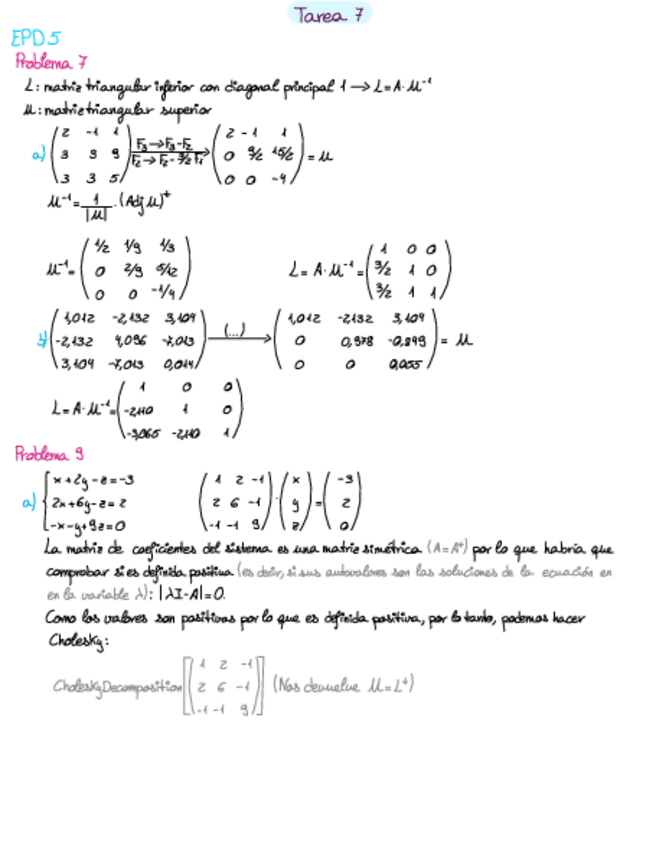 Tarea 7
EPD5
Problema 7
L: matriz triangular inferior con diagonal principal 1 → L = A · U⁻¹
U: matriz triangular superior
a) (2 -1 1; 3 3 9; 3 3 5) F₃→F₃-F₂ F₂→F₂-3/2F₁ → (2 -1 1; 0 9/2 15/2; 0 0 -4) = U
U⁻¹ = 1/|U| · (Adj U)ᵗ
U⁻¹ = (1/2 1/9 1/3; 0 2/9 5/12; 0 0 -1/4) L = A · U⁻¹ = (1 0 0; 3/2 1 0; 3/2 1 1)
b) (1,012 -2,132 3,104; -2,132 4,096 -7,013; 3,104 -7,013 0,014) (...) → (1,012 -2,132 3,104; 0 0,978 -0,849; 0 0 0,055) = U
L = A · U⁻¹ = (1 0 0; -2,110 1 0; -3,065 -2,110 1)
Problema 9
a) {x+2y-z=-3; 2x+6y-z=2; -x-y+9z=0 (1 2 -1; 2 6 -1; -1 -1 9) · (x; y; z) = (-3; 2; 0)
La matriz de coeficientes del sistema es una matriz simétrica (A=Aᵗ) por lo que habría que
comprobar si es definida positiva (es decir, si sus autovalores son las soluciones de la ecuación en
en la variable λ): |λI-A|=0.
Como los valores son positivos por lo que es definida positiva, por lo tanto, podemos hacer
Cholesky:
CholeskyDecomposition[(1 2 -1; 2 6 -1; -1 -1 9)] (Nos devuelve U=Lᵗ)